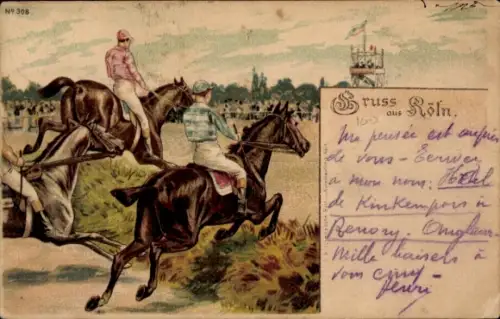 No 306
Gruss aus Köln.
Ma pensée est auprès
de vous - Ecrivez
à mon nom: Hôtel
de Kinkempois à
Renory - Angleur
Mille baisers à
vous cinq -
Henri